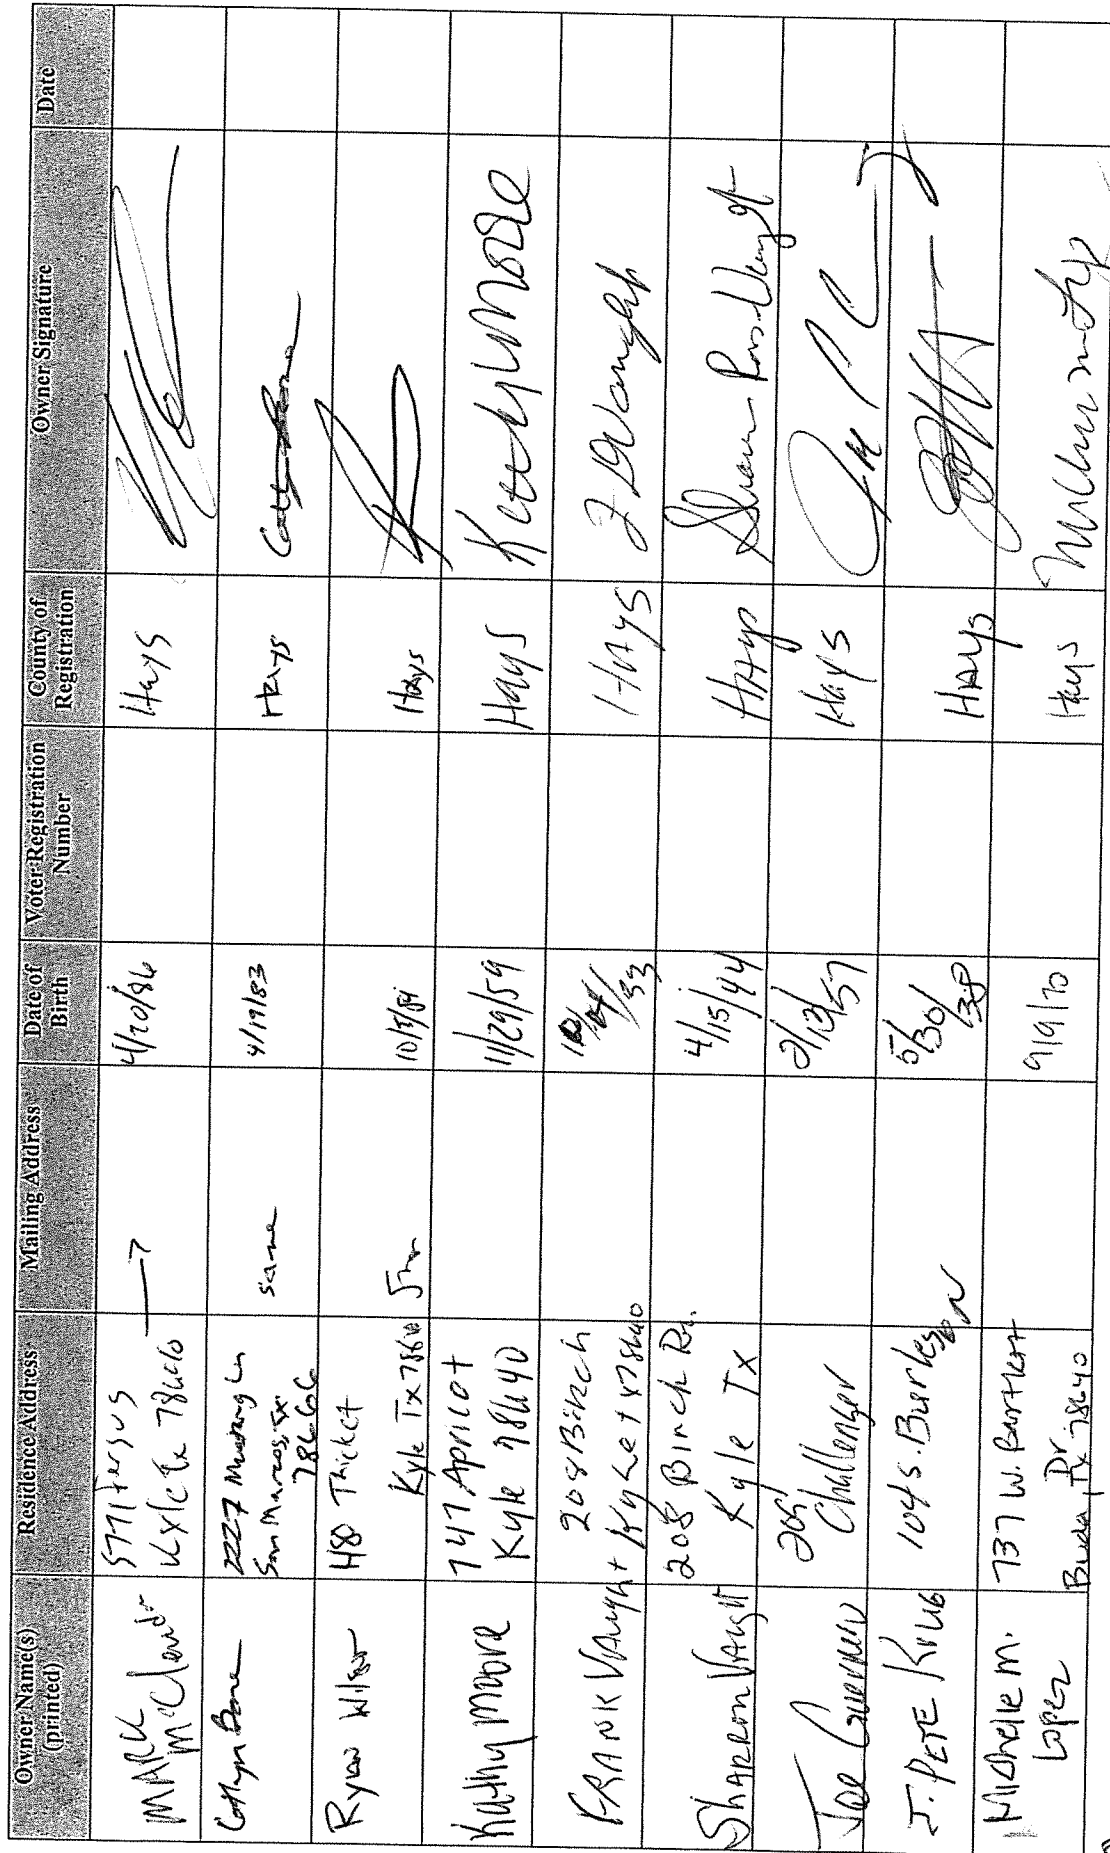 Owner Name(s) (printed) Residence Address Mailing Address Date of Birth Voter Registration Number County of Registration Owner Signature Date
MARK
McClend
Kyle Tx 78640
4/20/86
Hays
Cathryn Bone
2227 Mustang Ln
San Marcos, Tx
78666
same
4/19/83
Hays
Ryan Wilson
480 Thicket
Kyle Tx 78640
Hays
Kathy Moore
747 Apricot
Kyle 78640
11/29/59
Hays
Kathy Moore
FRANK VAUGHT
208 Birch
Kyle tx 78640
HAYS
SHARRON VAUGHT
208 Birch Rd.
Kyle Tx
4/15/44
HAYS
Joe
205
Challenger
2/13/57
Hays
J. PETE KRUG
104 S. Burleson
5/30/38
HAYS
Michelle M.
Lopez
737 W.
Dr
Buda, Tx 78640
9/9/70
Hays